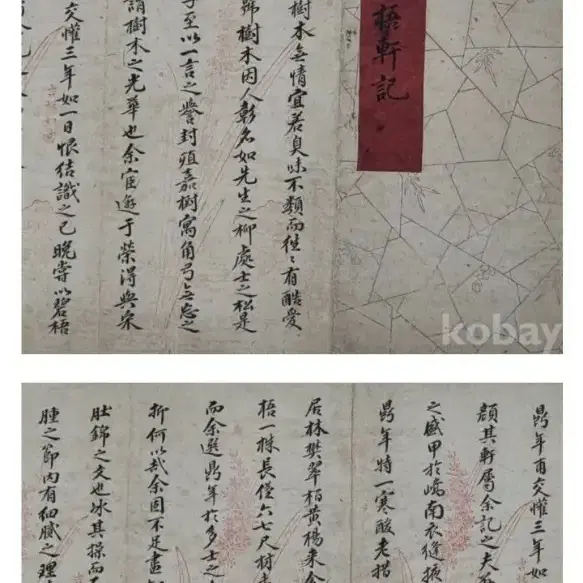 梧軒記
樹木無情宜若臭味不類而往〻有酷愛
樹木因人彰名如先生之柳處士之松是
至以一言之譽封殖嘉樹寓角弓無忘之
謂樹木之光華也余宦遊于榮得與朱
交懽三年如一日恨結識之已晚嘗以碧梧
kobay
年甫交懽三年如
顔其軒屬余記之夫
之盛甲於嶠南衣縫掖
年特一寒酸老措
居林樊翠柏黃楊來
梧一株長僅六七尺
而余選年於多士之
折何以哉余固不足盡
肚錦之文也冰其操而
腫之節內有細膩之理